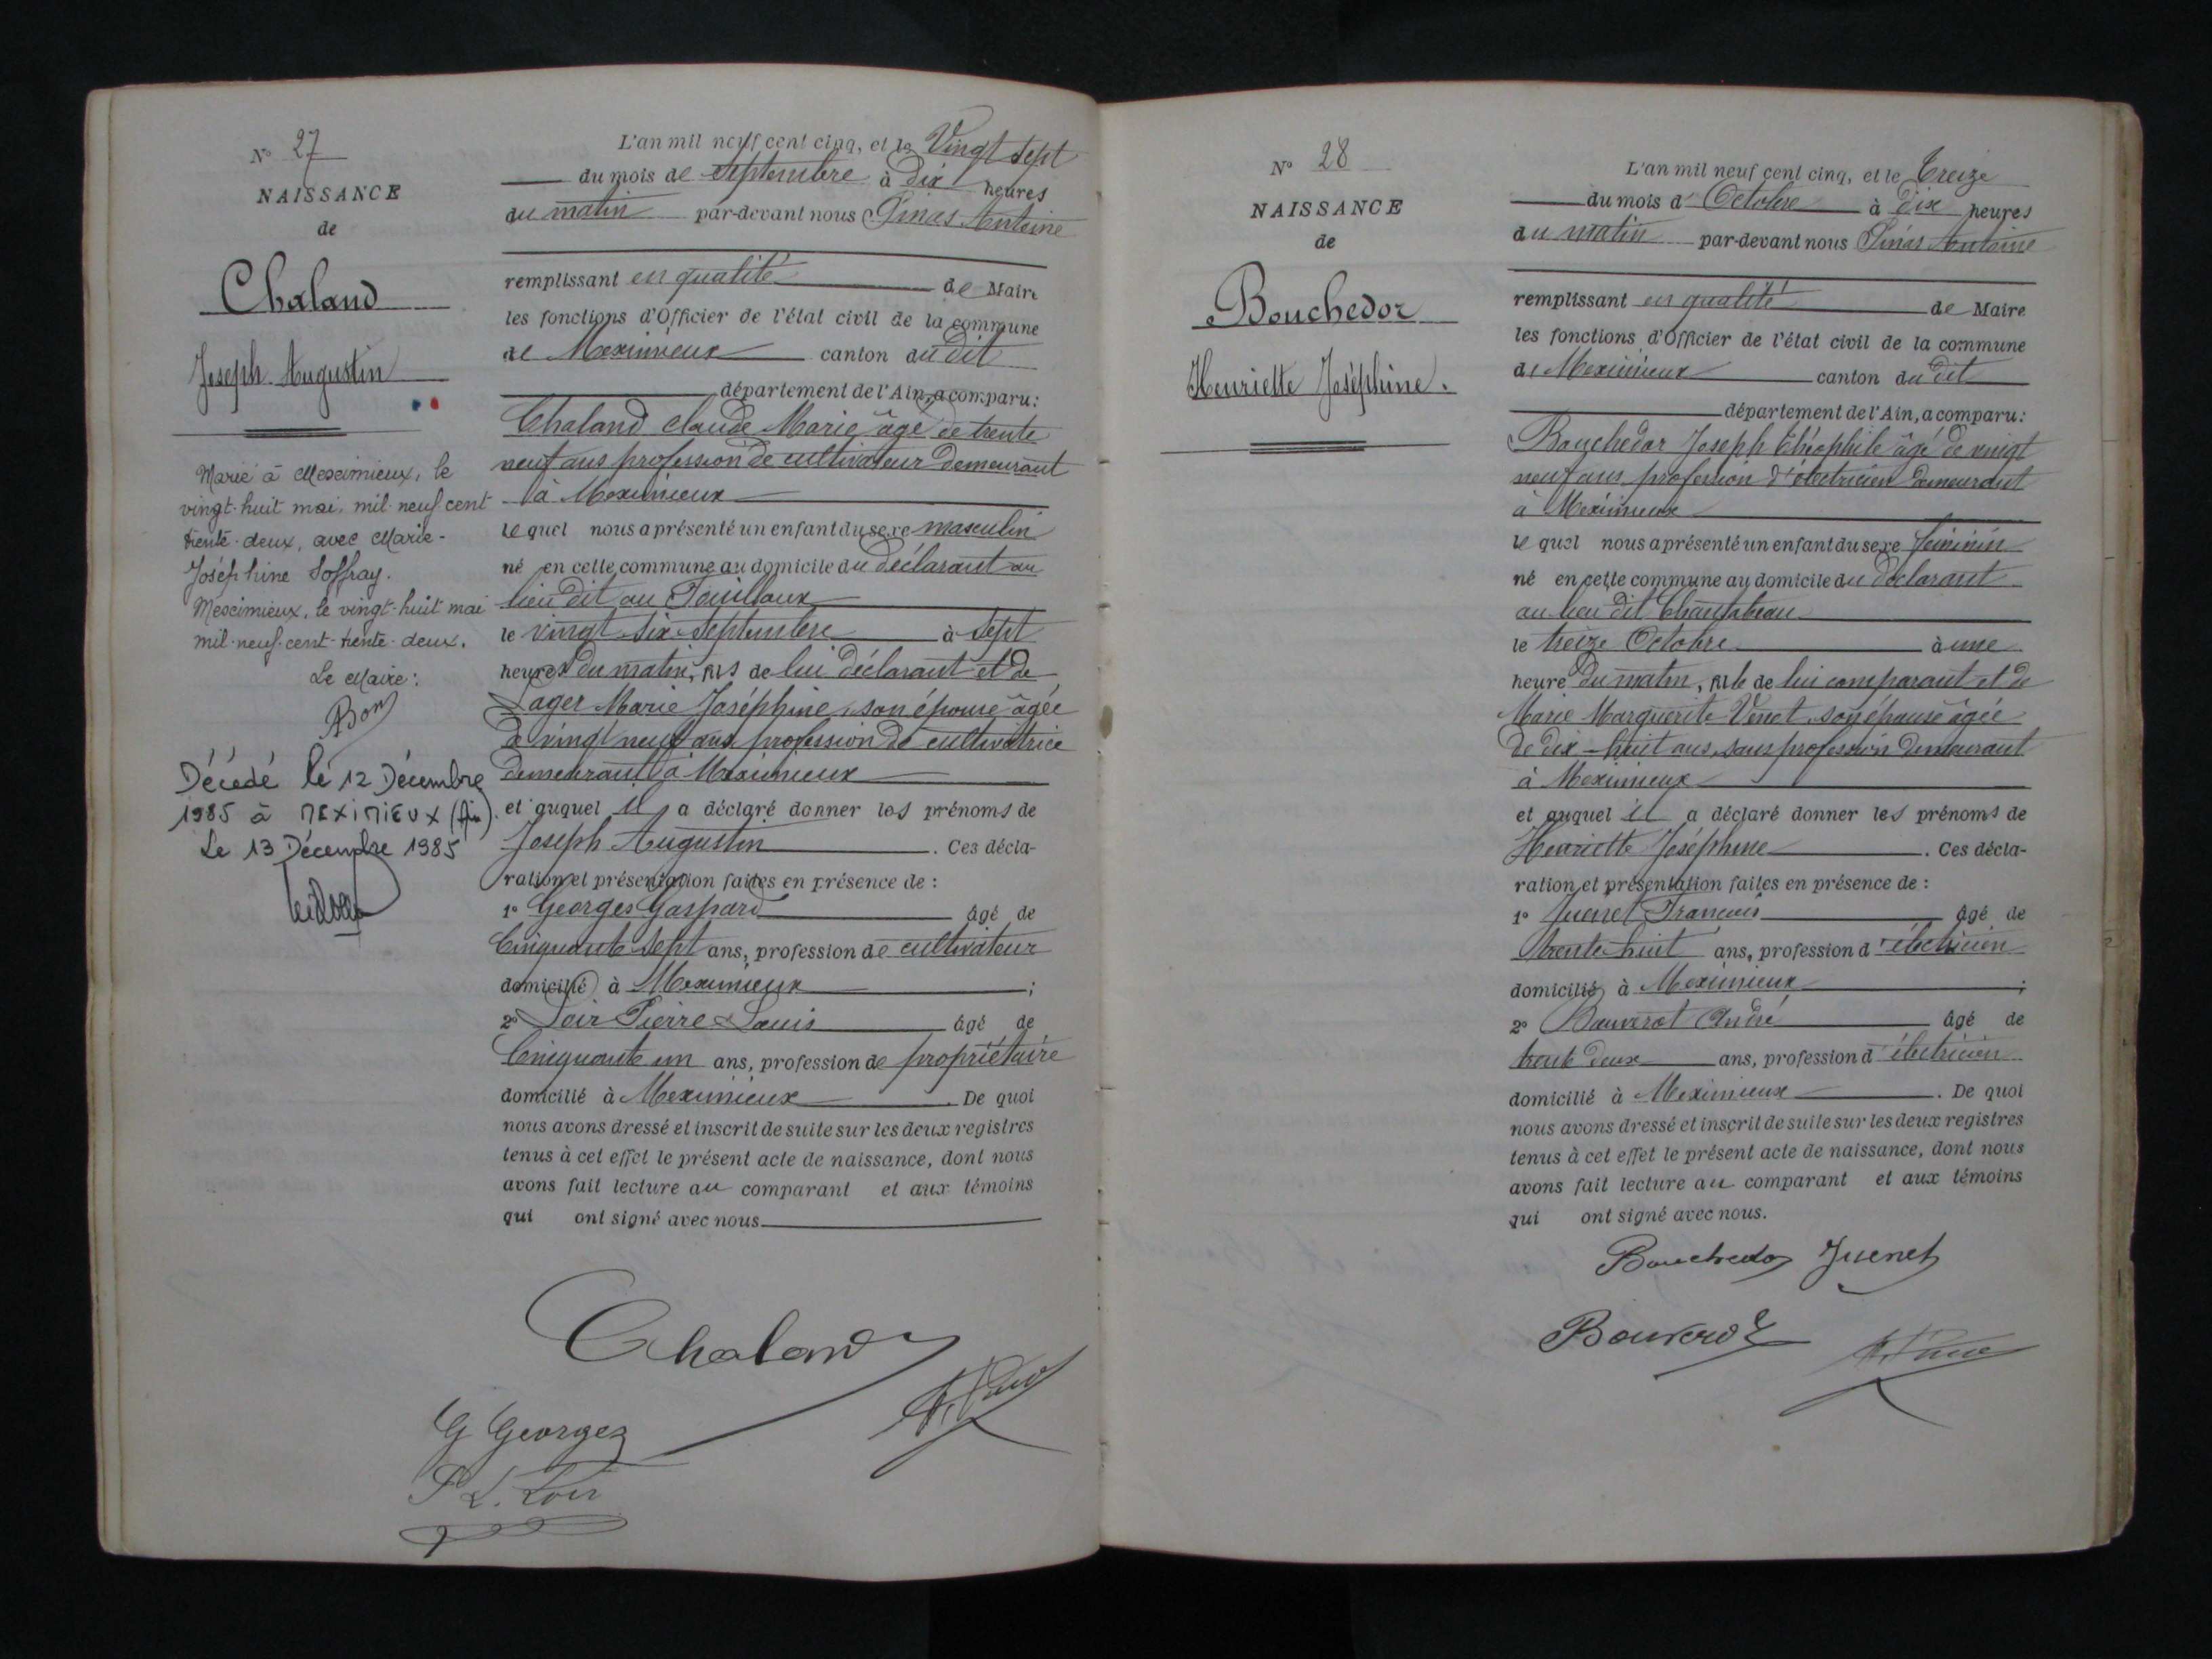 N° 27
NAISSANCE
de
Chaland
Joseph Augustin
Marié à Meximieux, le
vingt-huit mai, mil-neuf cent
trente-deux, avec Marie-
Joséphine Soffray.
Meximieux, le vingt-huit mai
mil-neuf-cent-trente-deux.
Le Maire:
Bon
Décédé le 12 Décembre
1985 à MEXIMIEUX (Ain).
Le 13 Décembre 1985
L'an mil neuf cent cinq, et le Vingt sept
du mois de Septembre à dix heures
du matin par-devant nous Pinas Antoine
remplissant en qualité de Maire
les fonctions d'Officier de l'état civil de la commune
de Meximieux canton du dit
département de l'Ain, a comparu:
Chaland Claude Marie âgé de trente
neuf ans profession de cultivateur demeurant
à Meximieux
lequel nous a présenté un enfant du sexe masculin
né en cette commune au domicile du déclarant au
lieu dit au
le vingt six Septembre à Sept
heures du matin, fils de lui déclarant et de
Lager Marie Joséphine, son épouse âgée
de vingt neuf ans profession de cultivatrice
demeurant à Meximieux
et auquel il a déclaré donner les prénoms de
Joseph Augustin. Ces décla-
ration et présentation faites en présence de :
1° Georges Gaspard âgé de
Cinquante sept ans, profession de cultivateur
domicilié à Meximieux ;
2° Loir Pierre Louis âgé de
Cinquante un ans, profession de propriétaire
domicilié à Meximieux. De quoi
nous avons dressé et inscrit de suite sur les deux registres
tenus à cet effet le présent acte de naissance, dont nous
avons fait lecture au comparant et aux témoins
qui ont signé avec nous.
Chaland
G Georges
P L. Loir
N° 28
NAISSANCE
de
Bouchedor
Henriette Joséphine.
L'an mil neuf cent cinq, et le Treize
du mois d'Octobre à dix heures
du matin par-devant nous Pinas Antoine
remplissant en qualité de Maire
les fonctions d'Officier de l'état civil de la commune
de Meximieux canton du dit
département de l'Ain, a comparu:
Bouchedor Joseph Théophile âgé de vingt
neuf ans profession d'électricien demeurant
à Meximieux
lequel nous a présenté un enfant du sexe féminin
né en cette commune au domicile du déclarant
au lieu dit Chantabeau
le treize Octobre à une
heure du matin, fille de lui comparant et de
Marie Marguerite Venet, son épouse âgée
de dix-huit ans, sans profession demeurant
à Meximieux
et auquel il a déclaré donner les prénoms de
Henriette Joséphine. Ces décla-
ration et présentation faites en présence de :
1° Juenet François âgé de
trente huit ans, profession d'électricien
domicilié à Meximieux ;
2° Bouverot André âgé de
trente deux ans, profession d'électricien
domicilié à Meximieux. De quoi
nous avons dressé et inscrit de suite sur les deux registres
tenus à cet effet le présent acte de naissance, dont nous
avons fait lecture au comparant et aux témoins
qui ont signé avec nous.
Bouchedor Juenet
Bouverot